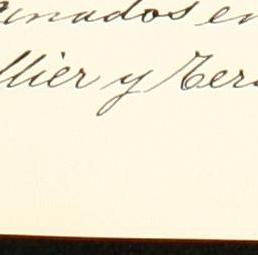 inados en
llier y Ter